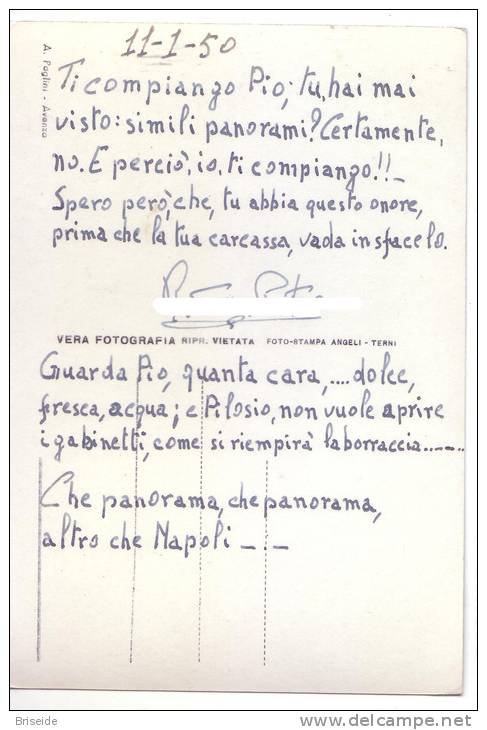 11-1-50
A. Paglini - Avanzo
Ti compiango Pio; tu, hai mai
visto: simili panorami? Certamente,
no. E perciò, io, ti compiango!!_
Spero però, che, tu abbia questo onore,
prima che la tua carcassa, vada in sfacelo.
VERA FOTOGRAFIA RIPR. VIETATA FOTO-STAMPA ANGELI - TERNI
Guarda Pio, quanta cara, .... dolce,
fresca, acqua; e Pilosio, non vuole aprire
i gabinetti, come si riempirà la borraccia......
Che panorama, che panorama,
altro che Napoli _._
Briseide
http://www.delcampe.net